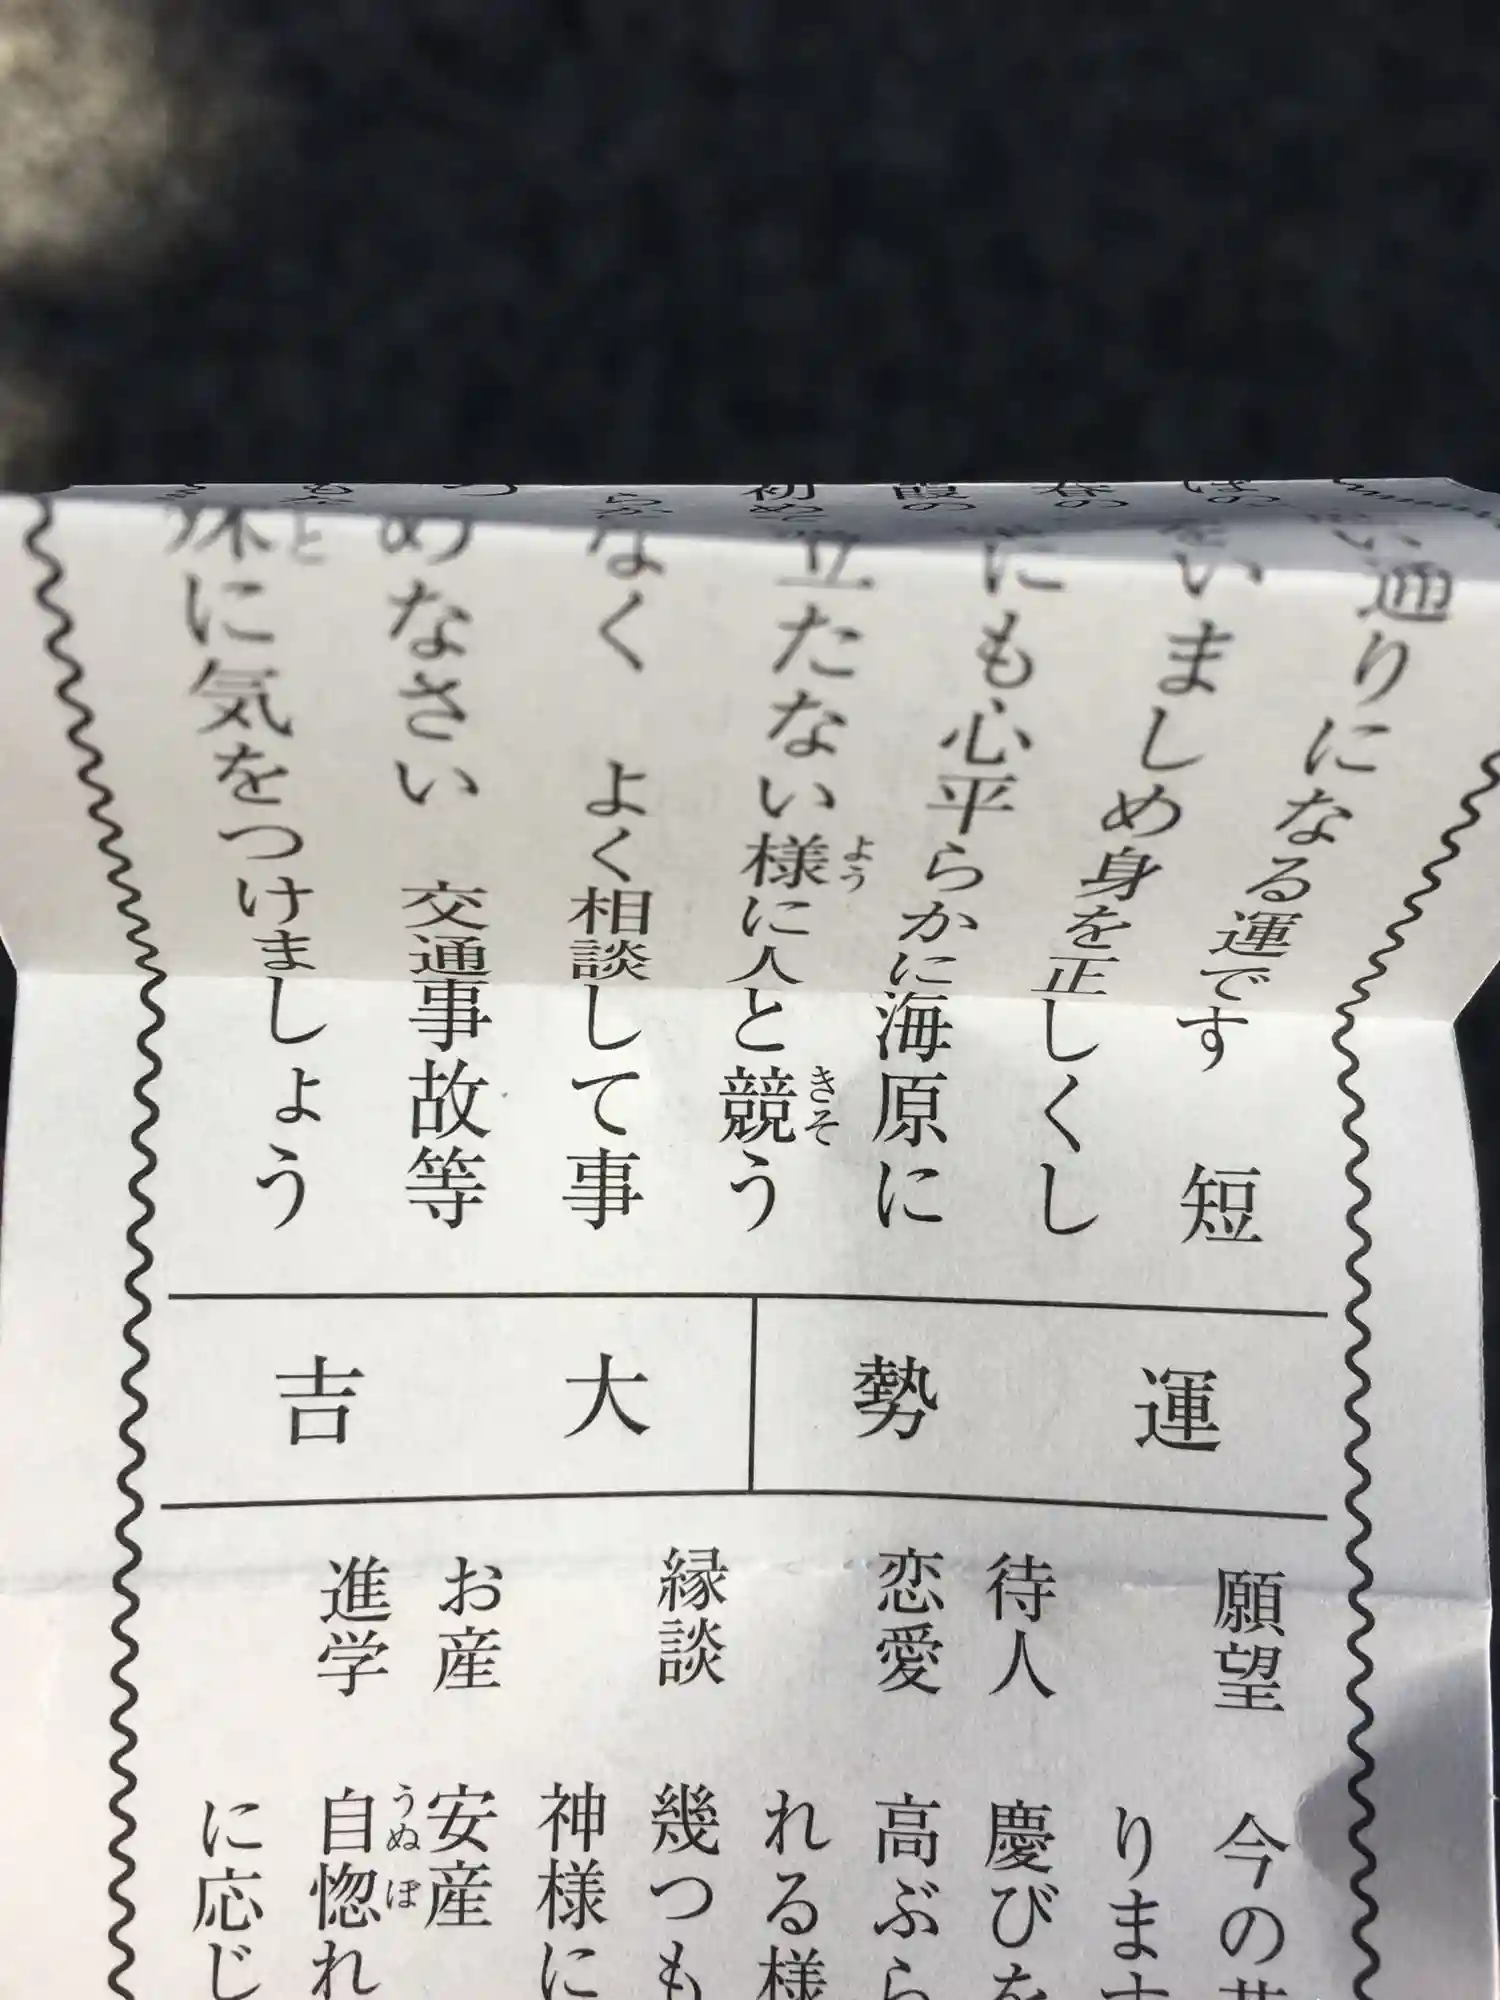 通りになる運です 短
いましめ身を正しくし
にも心平らかに海原に
立たない様に人と競う
よう
きそ
なく よく相談して事
めなさい 交通事故等
に気をつけましょう
運勢
大吉
願望 今の
ります
待人 慶びを
恋愛 高ぶら
れる様
縁談 幾つも
神様に
お産 安産
進学 自惚れ
うぬぼ
に応じ